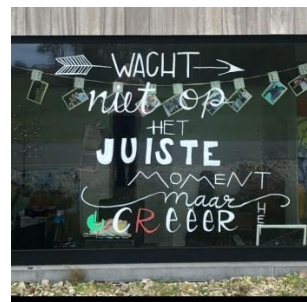 WACHT
niet op
HET
JUISTE
MOMENT
maar
CREEER
HE